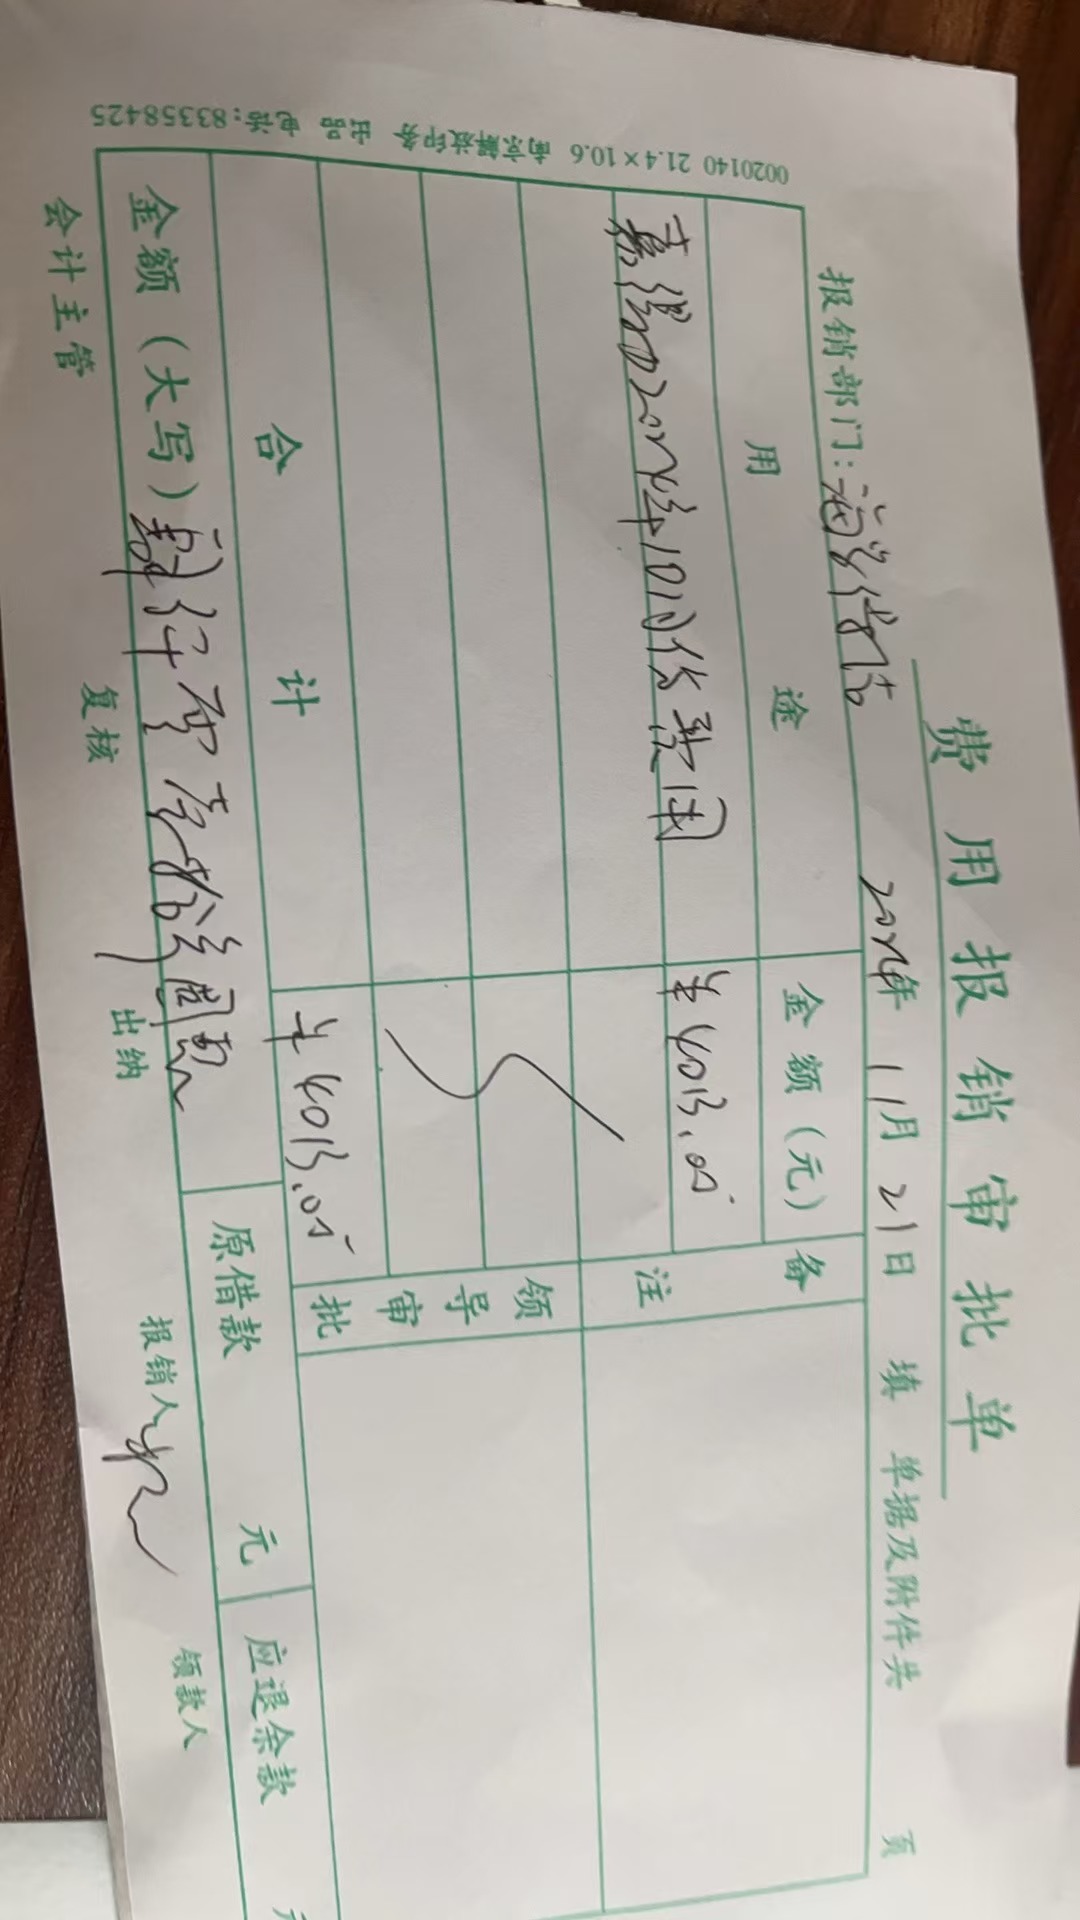 费用报销审批单
报销部门： 年 11月 21日 填 单据及附件共 页
用途 金额（元） 备注
嘉 年10月 费用 ¥4013.05
领导审批
合计 ¥4013.05
金额（大写） 肆仟零壹拾叁圆 原借款 元 应退余款
会计主管 复核 出纳 报销人 领款人
0020140 21.4×10.6 南京解放印务 出品 电话:83358425